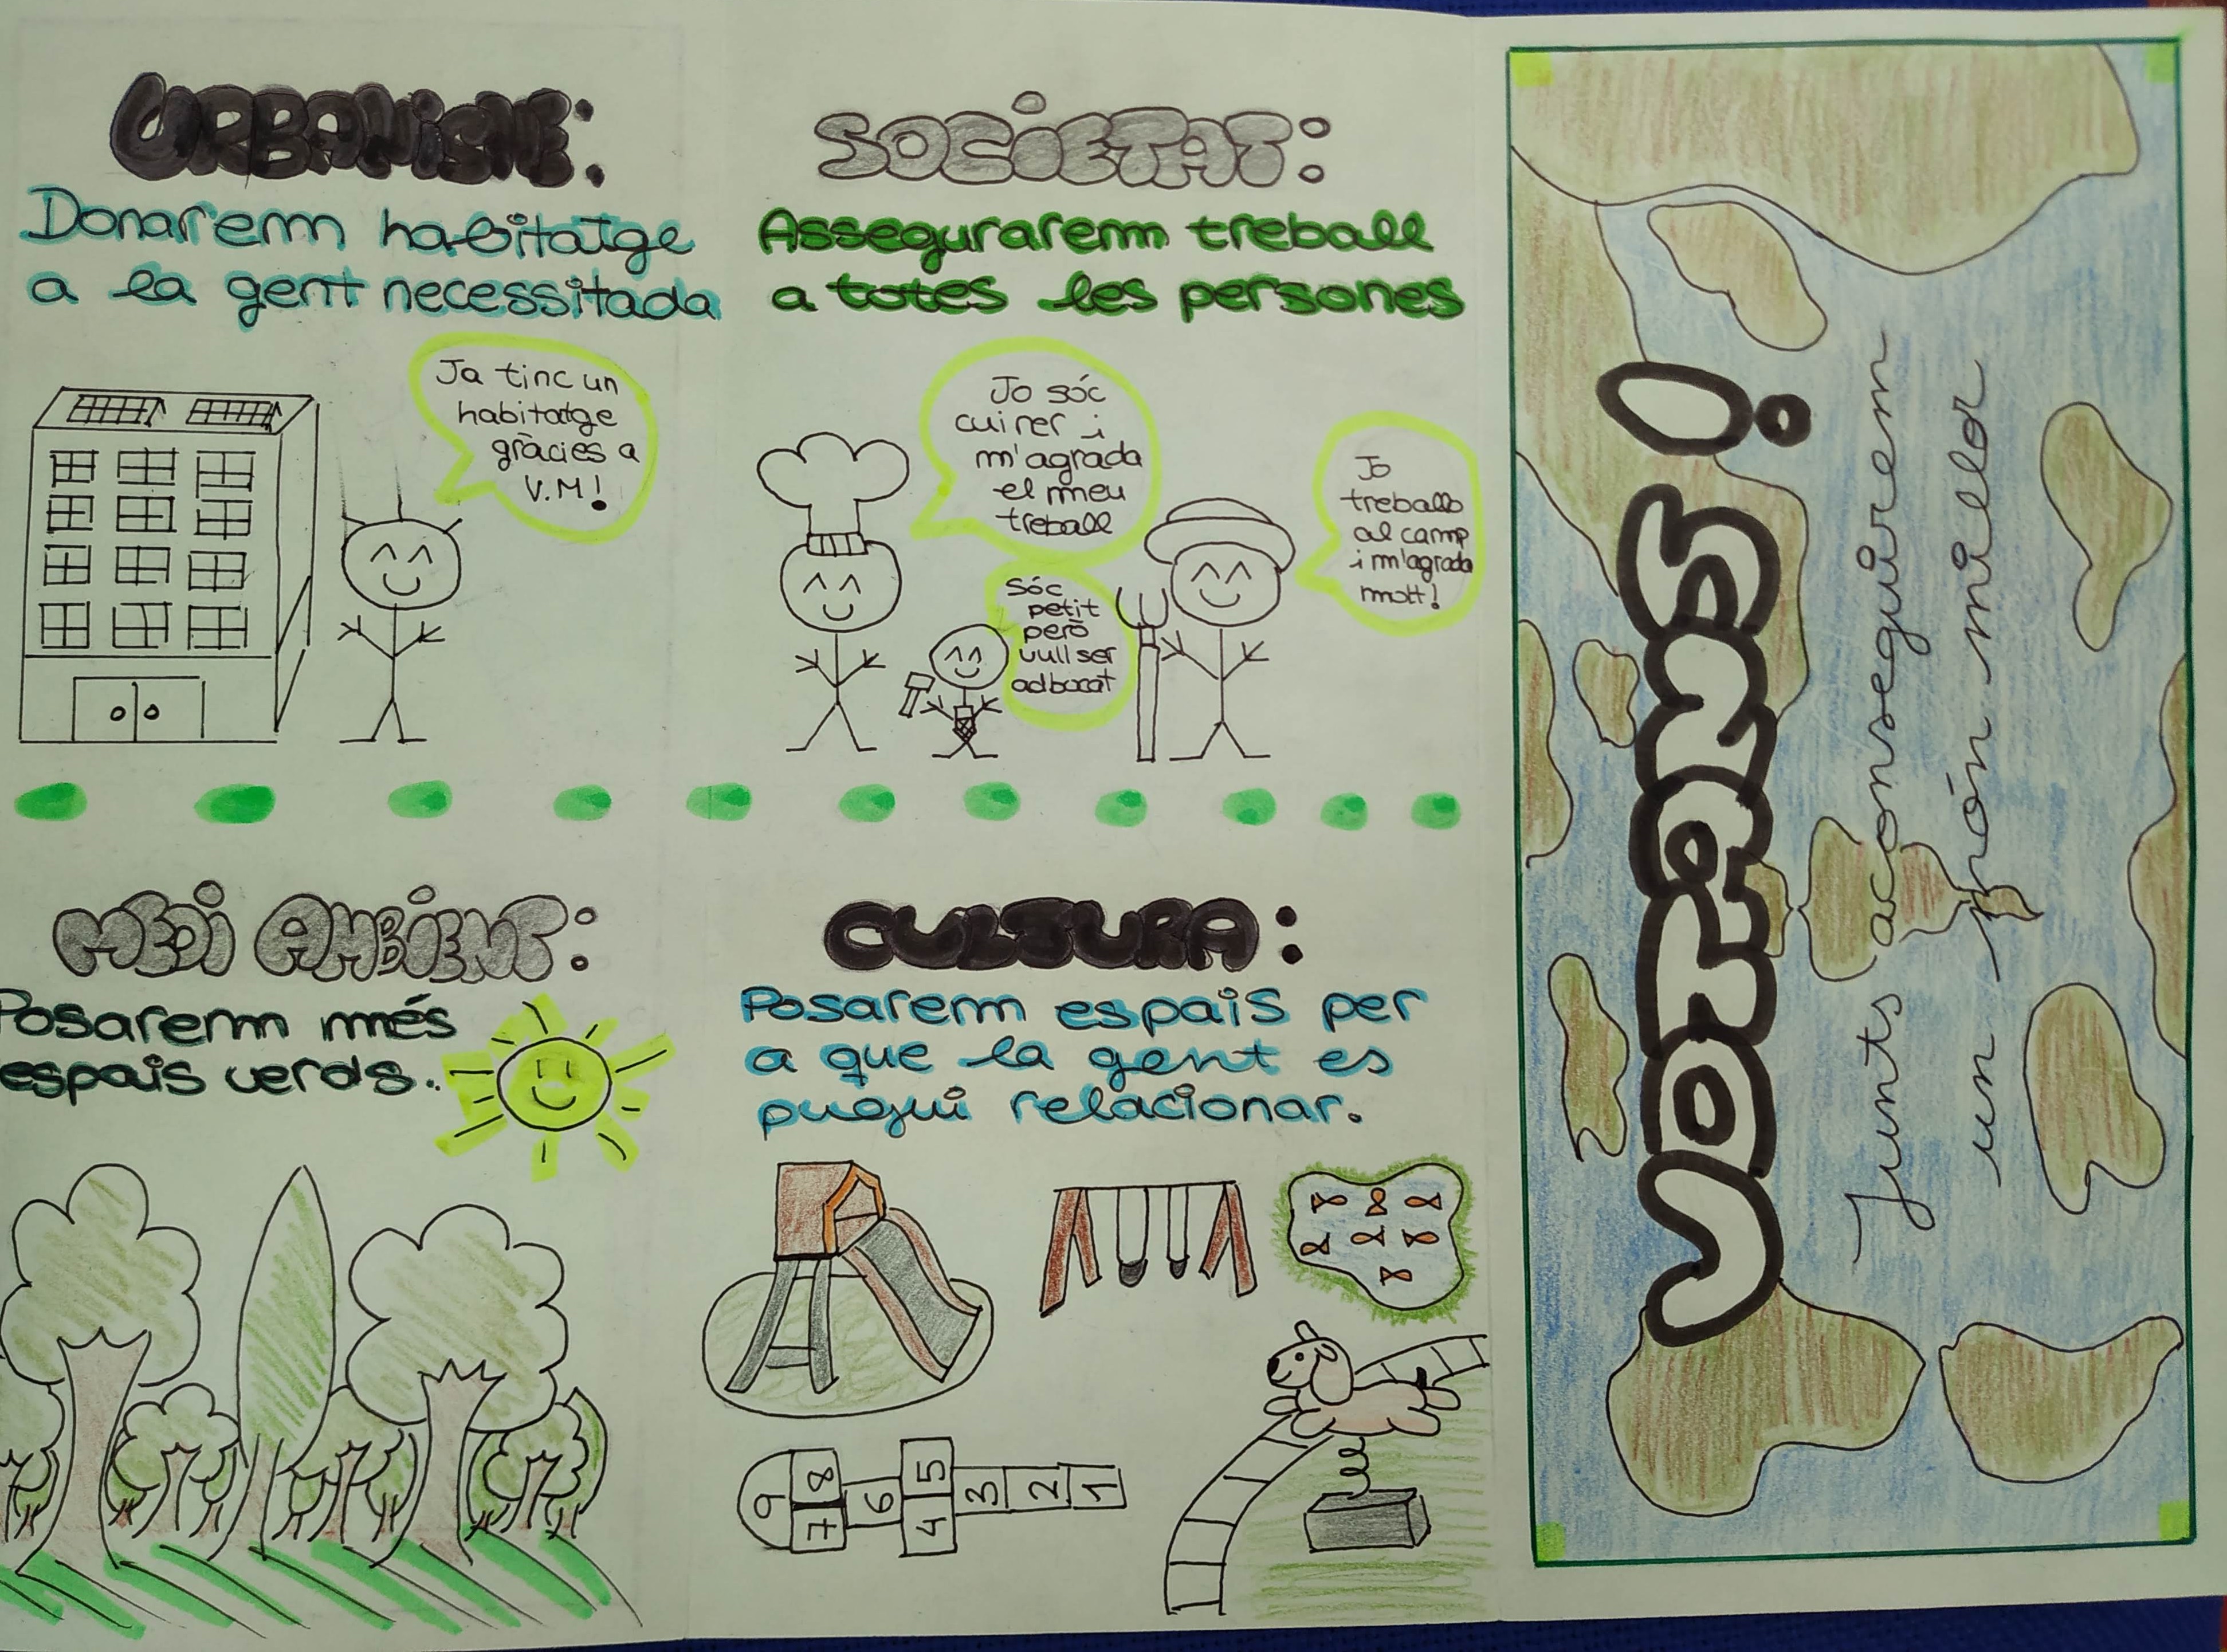 URBANISME:
Donarem habitatge
a la gent necessitada
Ja tinc un
habitatge
gràcies a
V.M!
SOCIETAT:
Assegurarem treball
a totes les persones
Jo sóc
cuiner i
m'agrada
el meu
treball
Sóc
petit
però
vull ser
adbocat
Jo
treballo
al camp
i m'agrada
molt!
MEDI AMBIENT:
Posarem més
espais verds.
CULTURA:
Posarem espais per
a que la gent es
pugui relacionar.
9 8 7 6 5 4 3 2 1
VOTANS!
Junts aconseguirem
un món millor